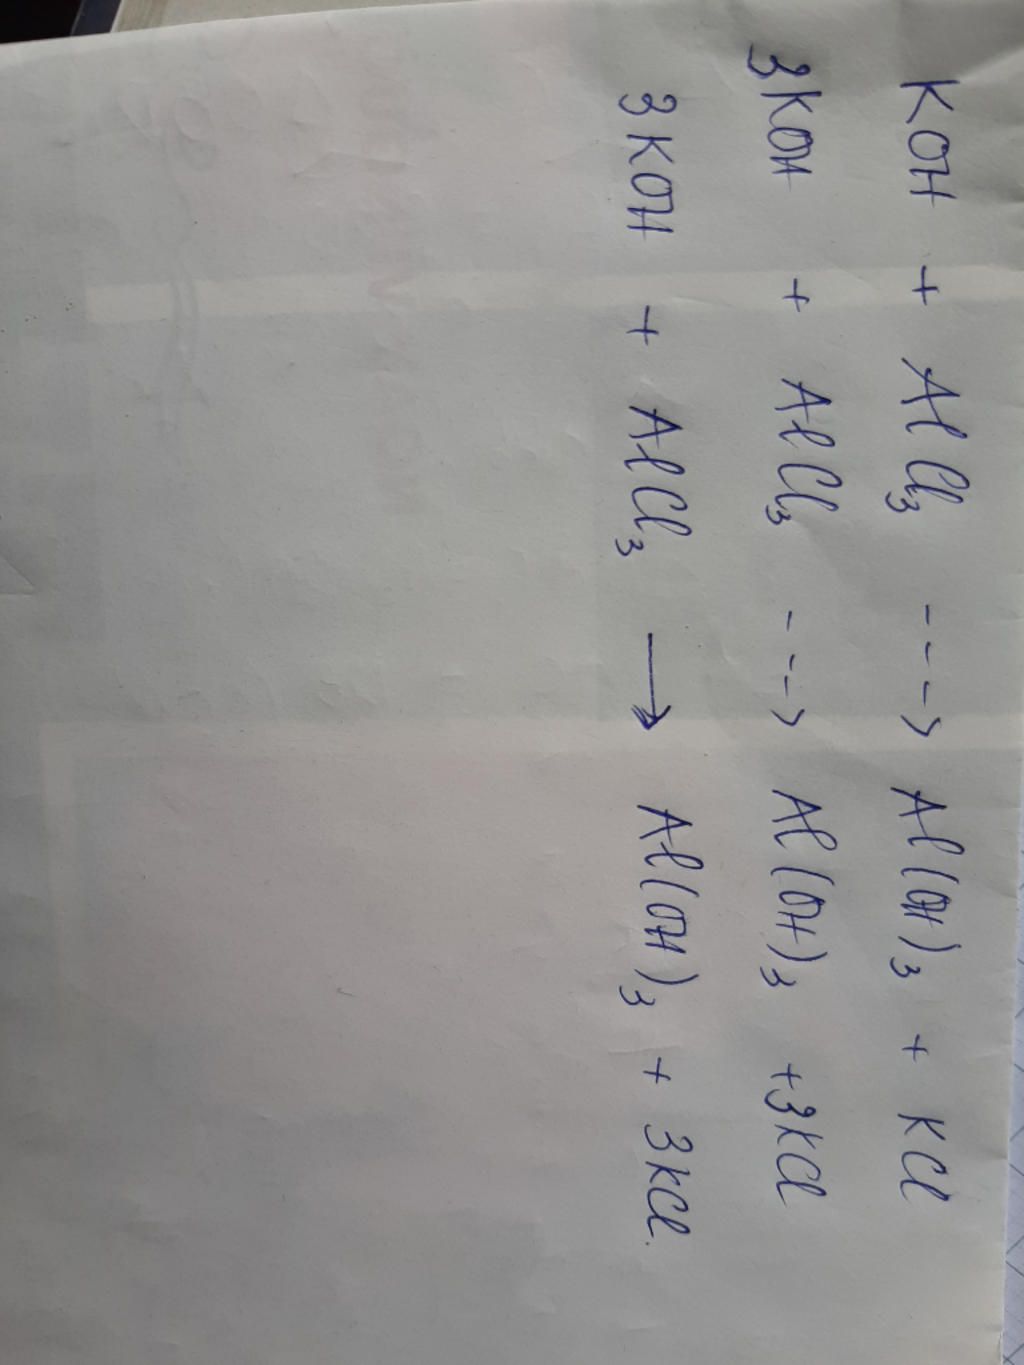 KOH + AlCl₃ ---> Al(OH)₃ + KCl
3KOH + AlCl₃ ---> Al(OH)₃ +3KCl
3KOH + AlCl₃ ⟶ Al(OH)₃ + 3KCl.